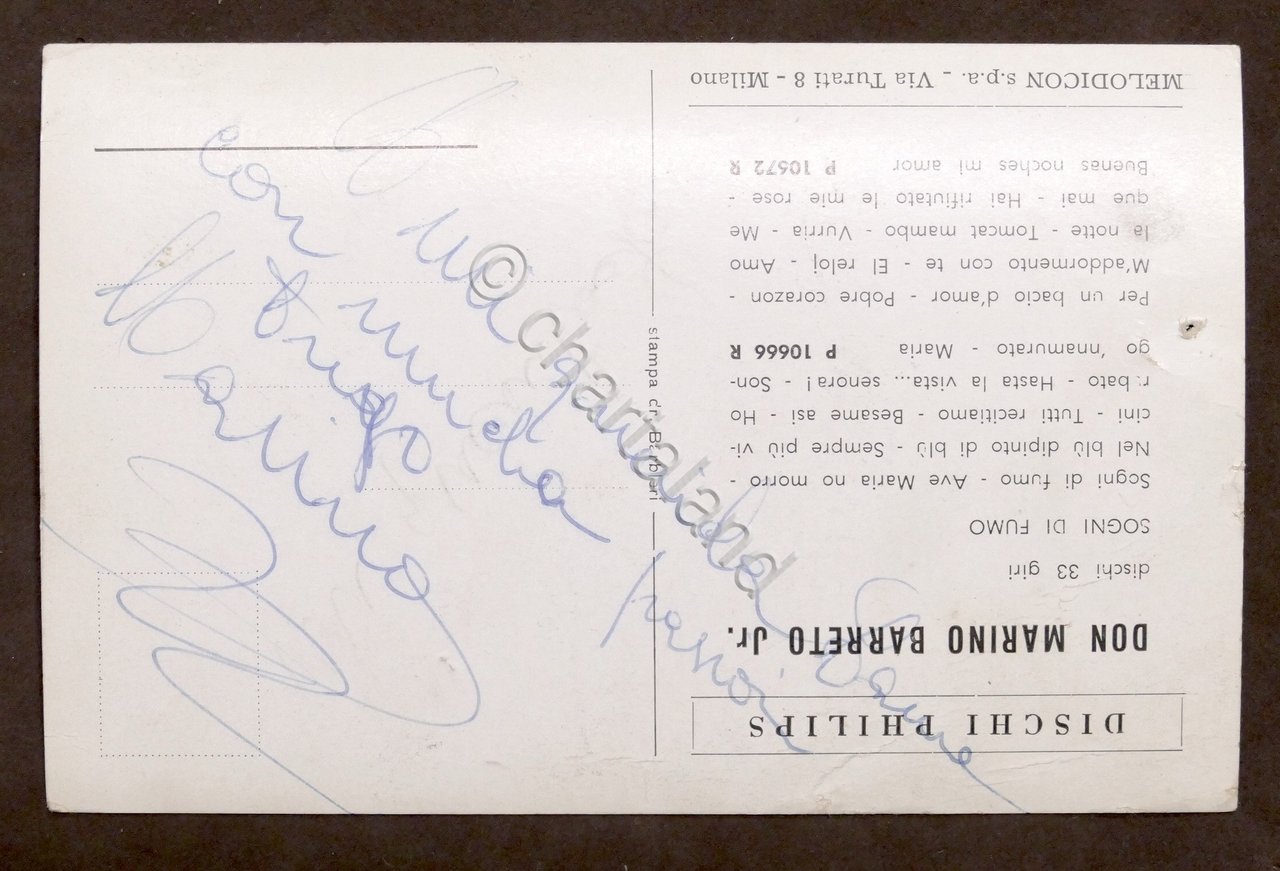 DISCHI PHILIPS
DON MARINO BARRETO Jr.
dischi 33 giri
SOGNI DI FUMO
Sogni di fumo - Ave Maria no morro -
Nel blù dipinto di blù - Sempre più vi-
cini - Tutti recitiamo - Besame asi - Ho
rubato - Hasta la vista... senora! - Son-
go 'nnamurato - Maria P 10666 R
Per un bacio d'amor - Pobre corazon -
M'addormento con te - El reloj - Amo
la notte - Tomcat mambo - Vurria - Me
que mai - Hai rifiutato le mie rose -
Buenas noches mi amor P 10672 R
MELODICON s.p.a. - Via Turati 8 - Milano
stampa dr. Barbieri
mi
con mucha
Marino
© chartaland